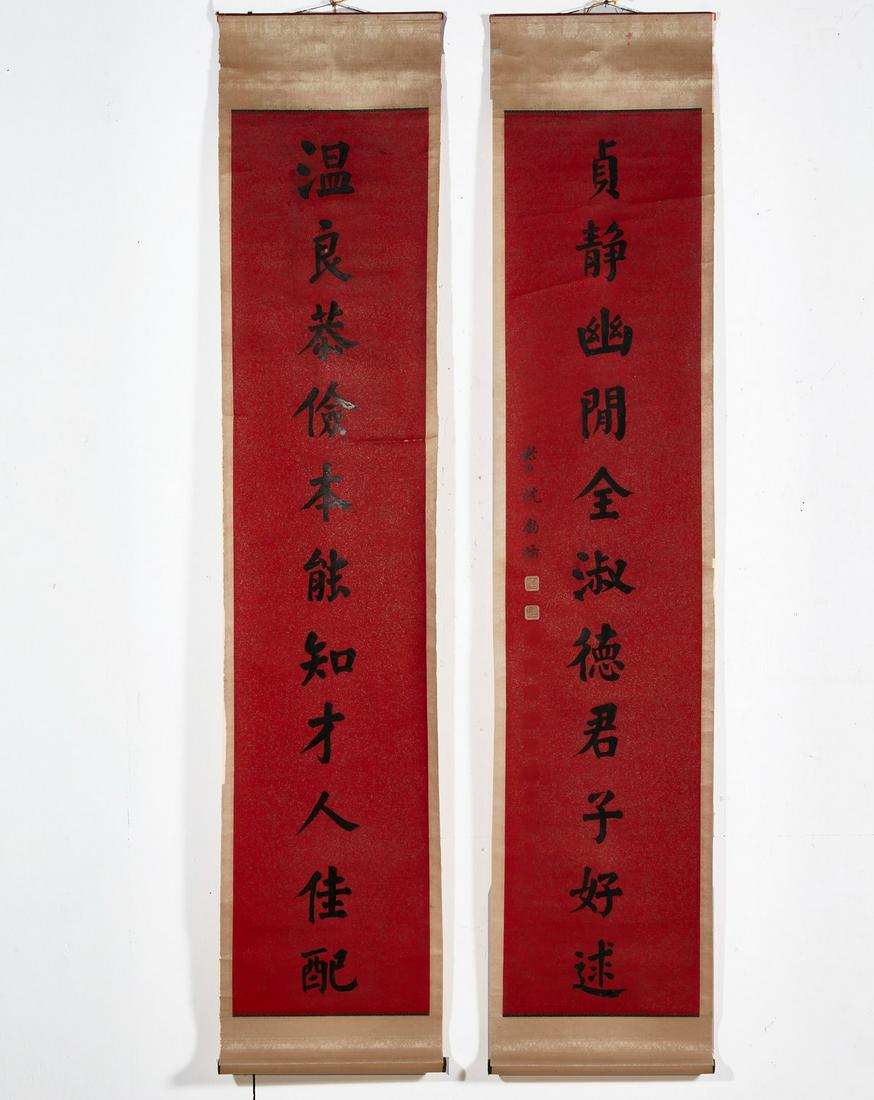 温良恭儉本能知才人佳配
貞静幽閒全淑德君子好逑